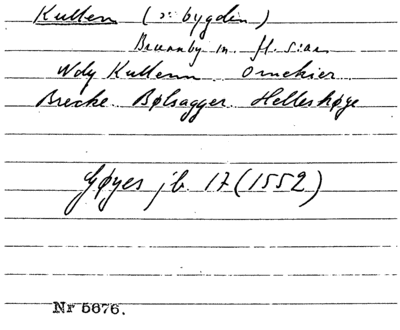 Kullen (ɔ: bygden)
Brunnby m. fl. s:nar
Wdy Kullenn Ornekier
Brecke Bølsagger Helleshøye
Gøyes jb. 17 (1552)
Nr 5676.